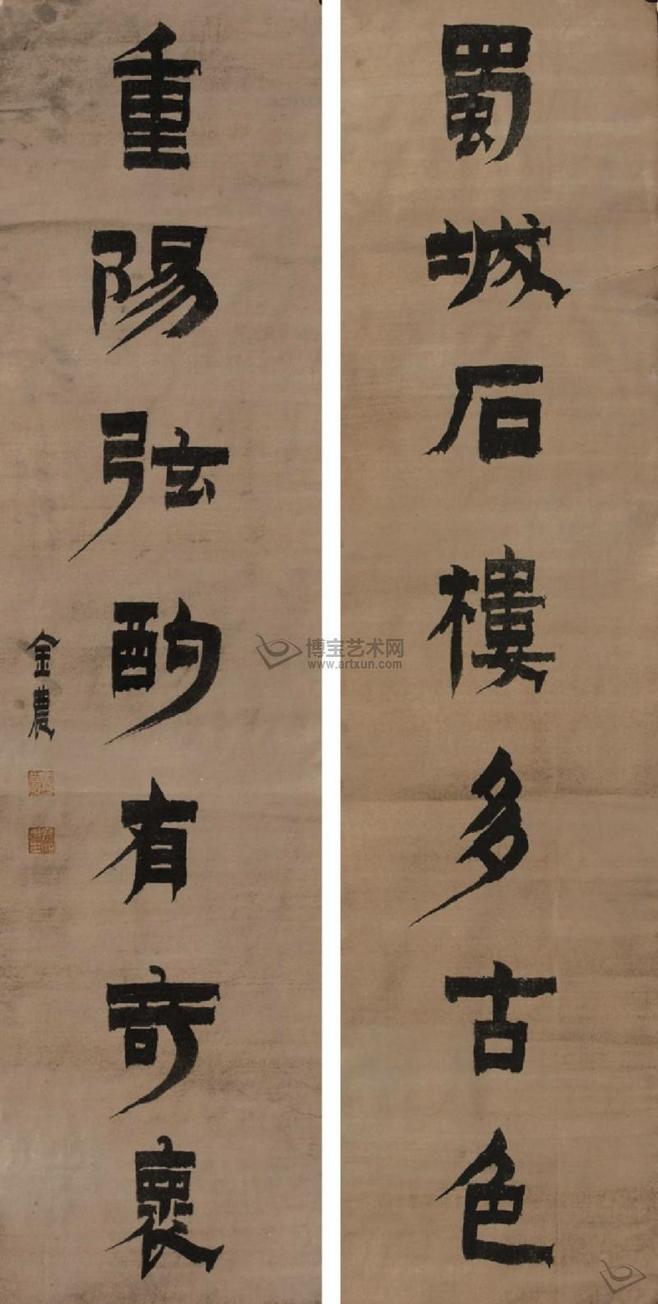 蜀城石樓多古色
重陽弦酌有奇褱
金農
博宝艺术网
www.artxun.com